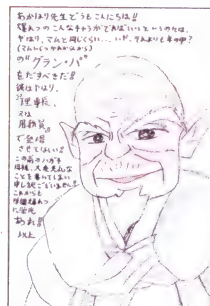 あかほり先生どうもこんにちは!!
爆れつのこんなキャラがでればいいというのは、
やはり、マムと同じくらい…いや、それよりも年の甲?
の"グラン・パ"
をだすべきだ!!
彼はやはり、
"理事長"
又は
用務員"
で登場
させてほしい!!
この前のハガキ
は
大変失礼な
ことを書いてしまい
申し訳ございません!!
これからも
爆れつ
に栄光
あれ!!
以上